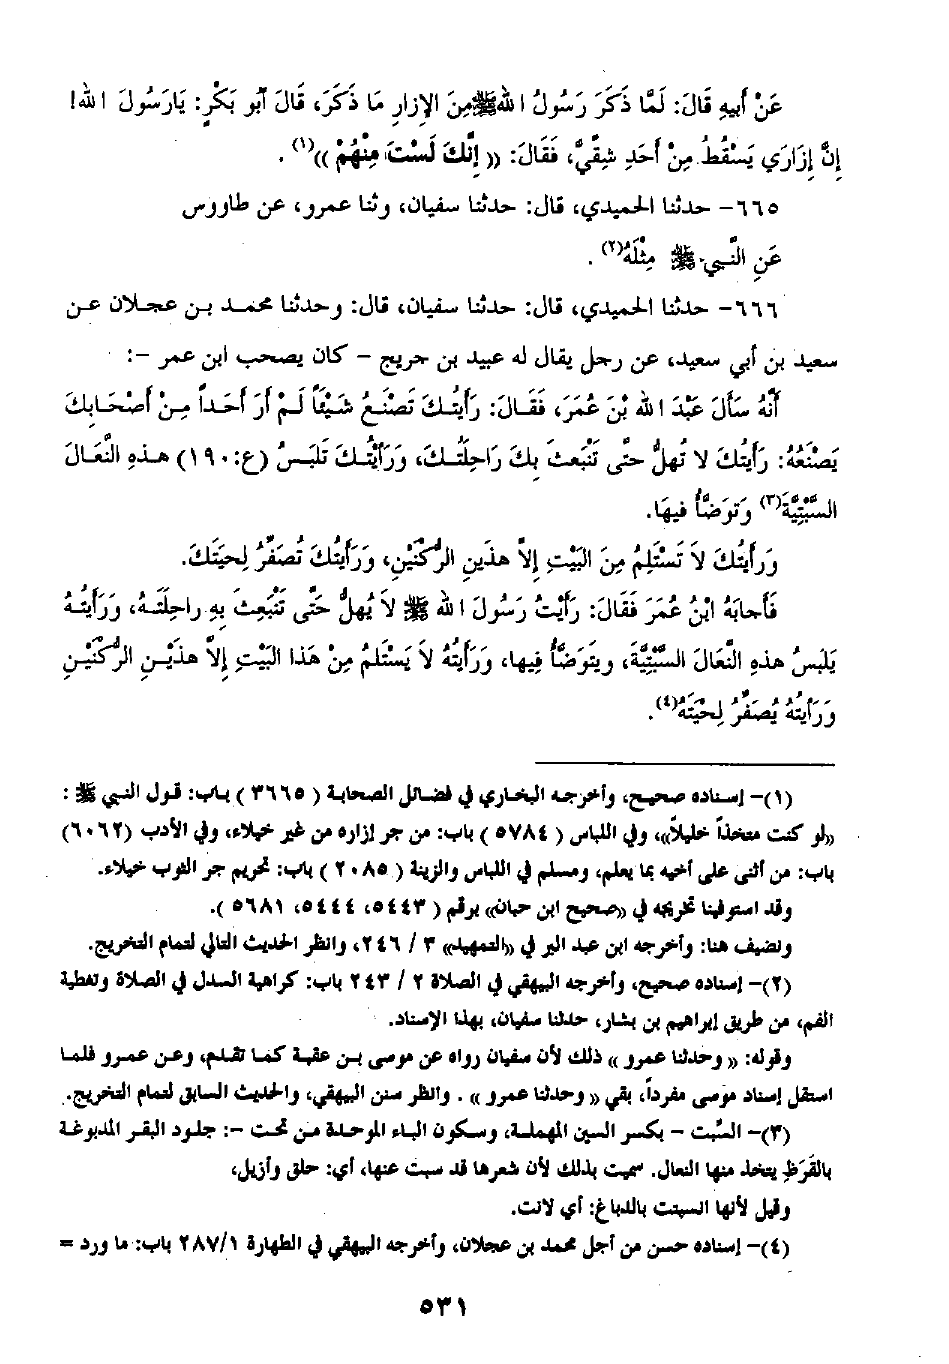 عَنْ أَبِيهِ قَالَ: لَمَّا ذَكَرَ رَسُولُ اللهِ ﷺ مِنَ الإِزَارِ مَا ذَكَرَ، قَالَ أَبُو بَكْرٍ: يَارَسُولَ اللهِ!
إِنَّ إِزَارِي يَسْقُطُ مِنْ أَحَدِ شِقَّيَّ، فَقَالَ: «إِنَّكَ لَسْتَ مِنْهُمْ»(١).
٦٦٥- حدثنا الحميدي، قال: حدثنا سفيان، وثنا عمرو، عن طاووس
عَنِ النَّبِيِّ ﷺ مِثْلَهُ(٢).
٦٦٦- حدثنا الحميدي، قال: حدثنا سفيان، قال: وحدثنا محمد بن عجلان عن
سعيد بن أبي سعيد، عن رجل يقال له عبيد بن جريج - كان يصحب ابن عمر -:
أَنَّهُ سَأَلَ عَبْدَ اللهِ بْنَ عُمَرَ، فَقَالَ: رَأَيْتُكَ تَصْنَعُ شَيْئاً لَمْ أَرَ أَحَداً مِنْ أَصْحَابِكَ
يَصْنَعُهُ: رَأَيْتُكَ لا تُهِلُّ حَتَّى تَنْبَعِثَ بِكَ رَاحِلَتُكَ، وَرَأَيْتُكَ تَلْبَسُ (ع:١٩٠) هذِهِ النِّعَالَ
السِّبْتِيَّةَ(٣) وَتَوَضَّأُ فِيهَا.
وَرَأَيْتُكَ لاَ تَسْتَلِمُ مِنَ البَيْتِ إِلاَّ هذَينِ الرُّكْنَيْنِ، وَرَأَيْتُكَ تُصَفِّرُ لِحيَتَكَ.
فَأَجابَهُ ابْنُ عُمَرَ فَقَالَ: رَأَيْتُ رَسُولَ اللهِ ﷺ لاَ يُهِلُّ حَتَّى تَنْبَعِثَ بِهِ راحِلَتَهُ، وَرَأَيْتُهُ
يَلبَسُ هذهِ النِّعَالَ السِّبْتِيَّةَ، ويتَوَضَّأُ فِيها، وَرَأَيْتَهُ لاَ يَسْتَلِمُ مِنْ هَذَا البَيْتِ إِلاَّ هذَيْنِ الرُّكْنَيْنِ
وَرَأَيْتُهُ يُصَفِّرُ لِحْيَتَهُ(٤).
(١)- إسناده صحيح، وأخرجه البخاري في فضائل الصحابة (٣٦٦٥) باب: قول النبي ﷺ :
«لو كنت متخذاً خليلاً»، وفي اللباس (٥٧٨٤) باب: من جر إزاره من غير خيلاء، وفي الأدب (٦٠٦٢)
باب: من أثنى على أخيه بما يعلم، ومسلم في اللباس والزينة (٢٠٨٥) باب: تحريم جر الثوب خيلاء.
وقد استوفينا تخريجه في «صحيح ابن حبان» برقم (٥٤٤٣، ٥٤٤٤، ٥٦٨١).
ونضيف هنا: وأخرجه ابن عبد البر في «التمهيد» ٣ / ٢٤٦، وانظر الحديث التالي لتمام التخريج.
(٢)- إسناده صحيح، وأخرجه البيهقي في الصلاة ٢ / ٢٤٣ باب: كراهية السدل في الصلاة وتغطية
الفم، من طريق إبراهيم بن بشار، حدثنا سفيان، بهذا الإسناد.
وقوله: «وحدثنا عمرو» ذلك لأن سفيان رواه عن موسى بن عقبة كما تقدم، وعن عمرو فلما
استقل إسناد موسى مفرداً، بقي «وحدثنا عمرو» . وانظر سنن البيهقي، والحديث السابق لتمام التخريج.
(٣)- السِّبت - بكسر السين المهملة، وسكون الباء الموحدة من تحت -: جلود البقر المدبوغة
بالقَرَظِ يتخذ منها النعال. سميت بذلك لأن شعرها قد سبت عنها، أي: حلق وأزيل،
وقيل لأنها انسبتت بالدباغ: أي لانت.
(٤)- إسناده حسن من أجل محمد بن عجلان، وأخرجه البيهقي في الطهارة ٢٨٧/١ باب: ما ورد =
٥٣١